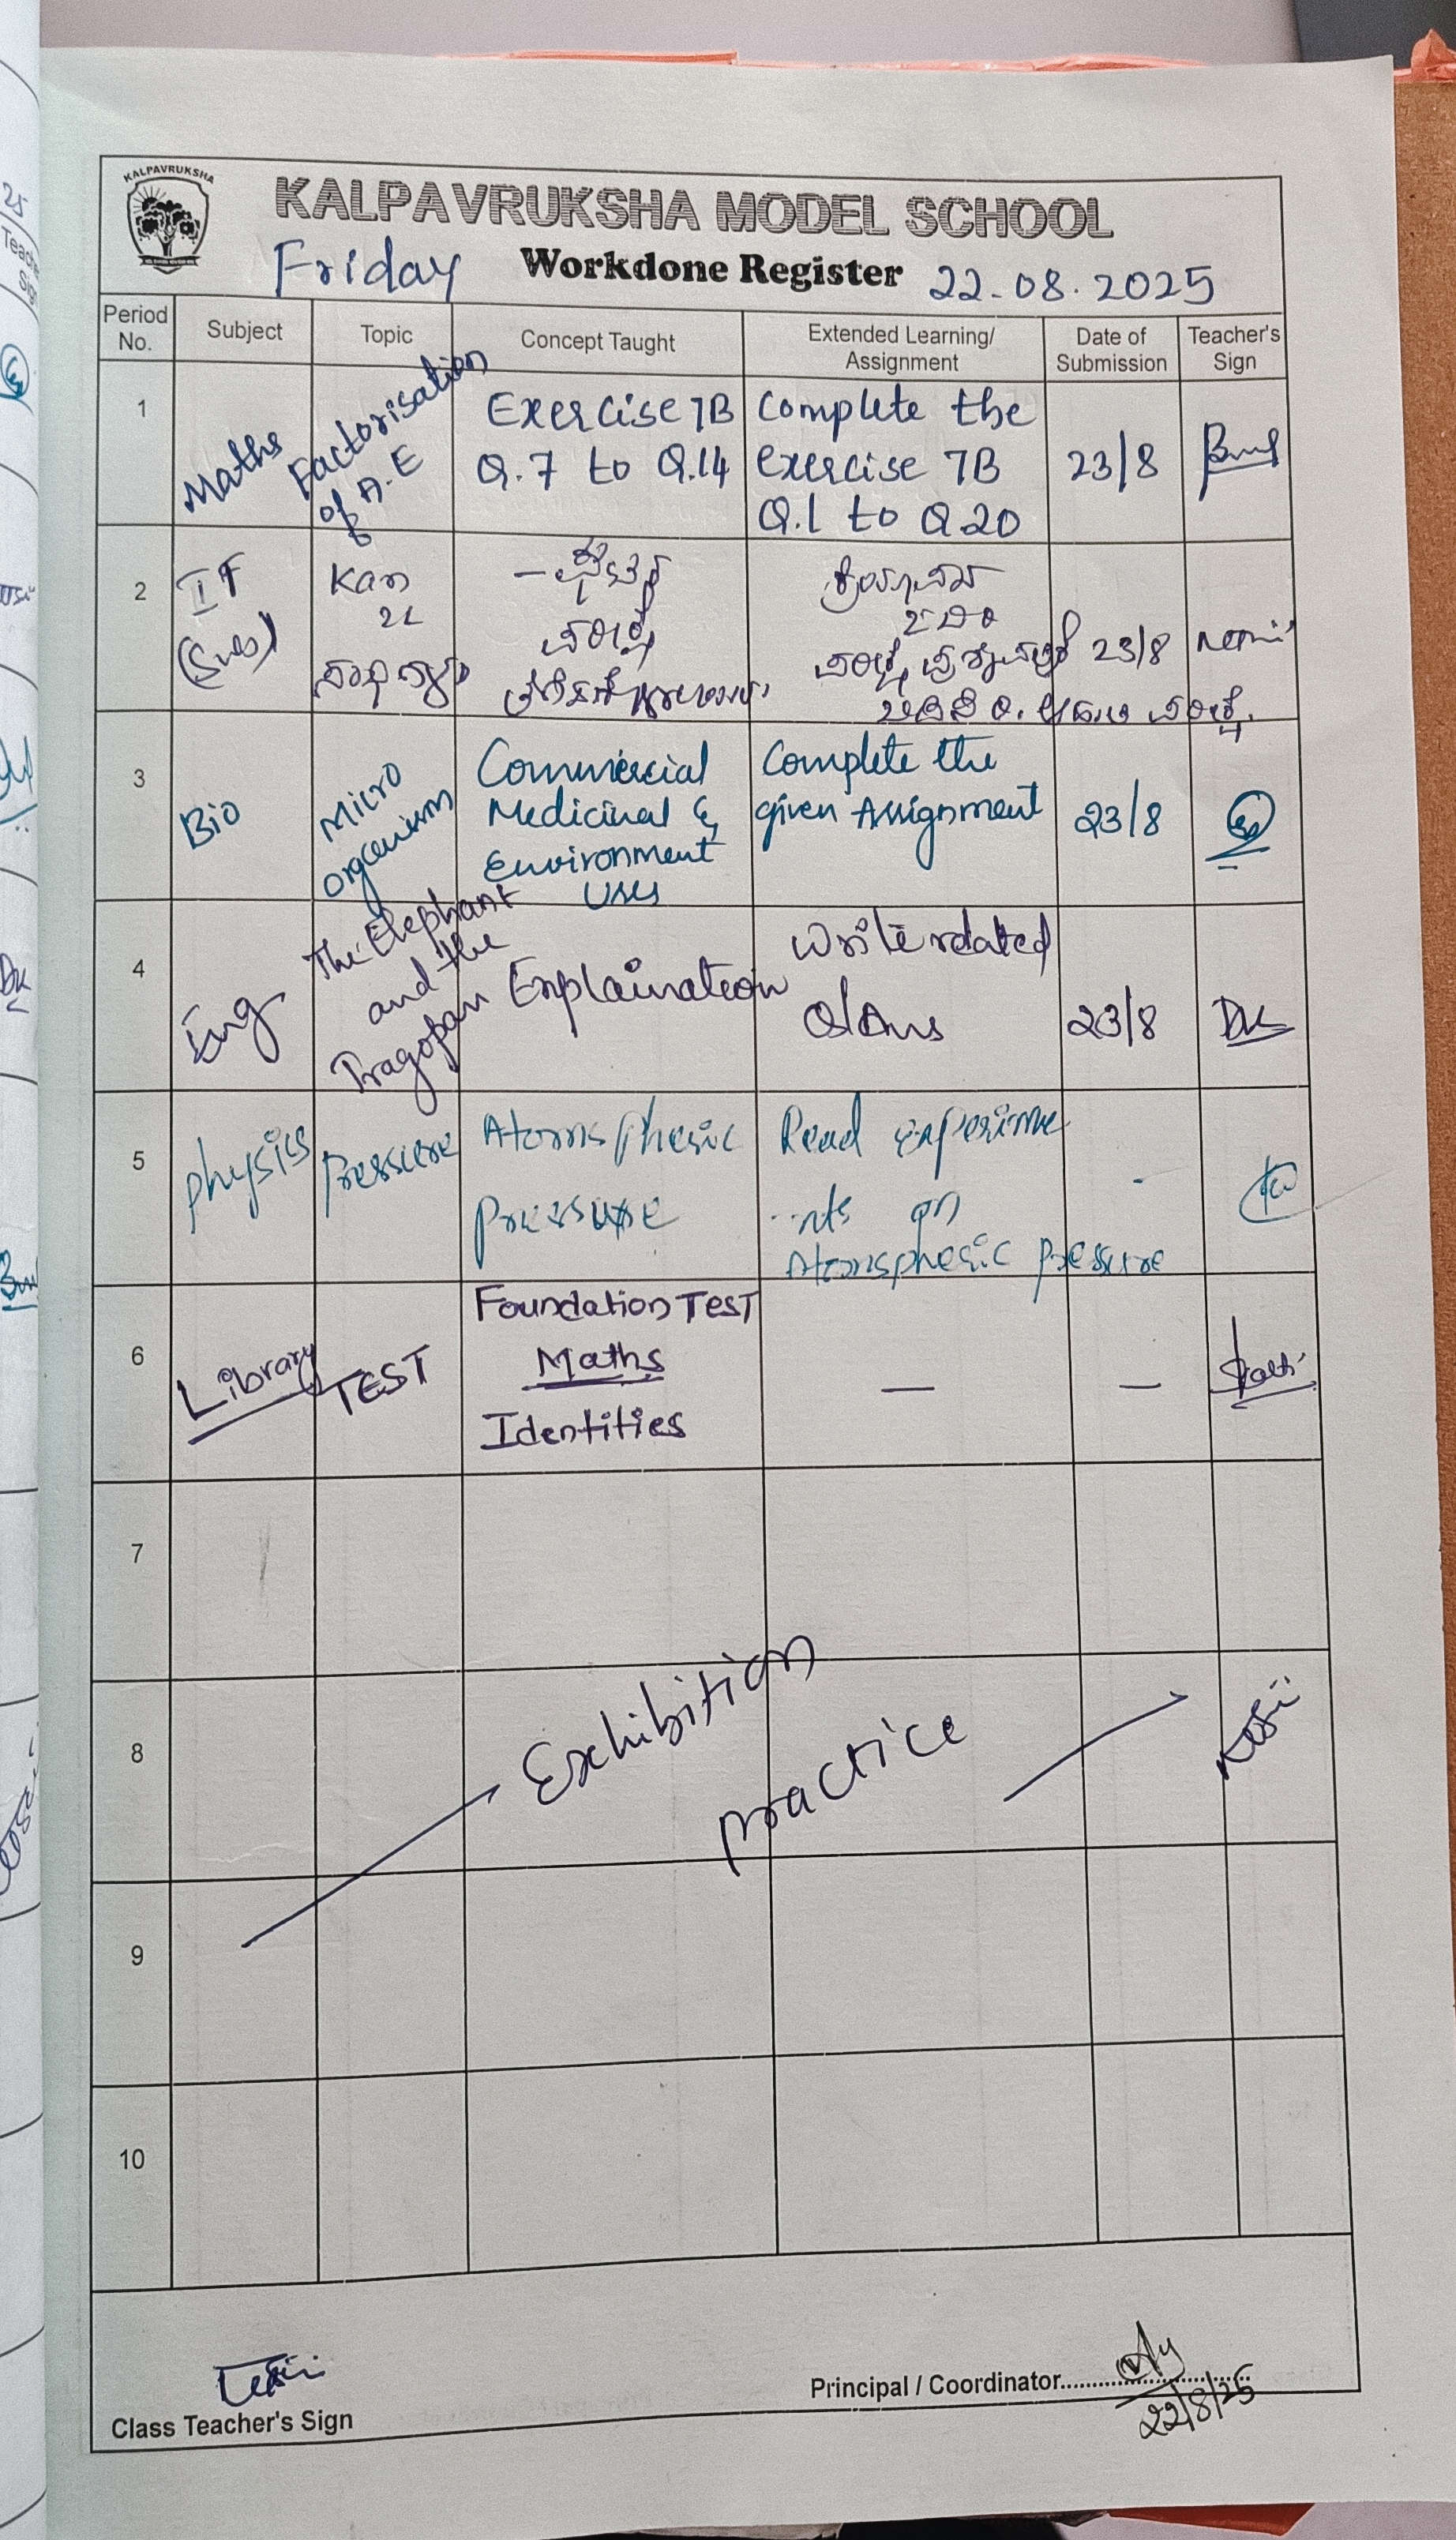 KALPAVRUKSHA
KALPAVRUKSHA MODEL SCHOOL
Friday Workdone Register 22-08.2025
Period No. Subject Topic Concept Taught Extended Learning/ Assignment Date of Submission Teacher's Sign
1 Maths Factorisation of A.E Exercise 7B Complete the
Q.7 to Q.14 exercise 7B 23/8
Q.1 to Q20
2 II Kan
23/8
3 Bio Micro organism Commercial Complete the
Medicinal & given Assignment 23/8
Environment
Uses
4 Eng The Elephant and the Tragopan Explaination Write related
Q/Ans 23/8
5 Physics Pressure Atomsphesic Read experime
Pressure nts on
Atomsphesic pressure
6 Library TEST Foundation TEST
Maths
Identities — —
7
8 Exhibition practice
9
10
Class Teacher's Sign
Principal / Coordinator
22/8/25